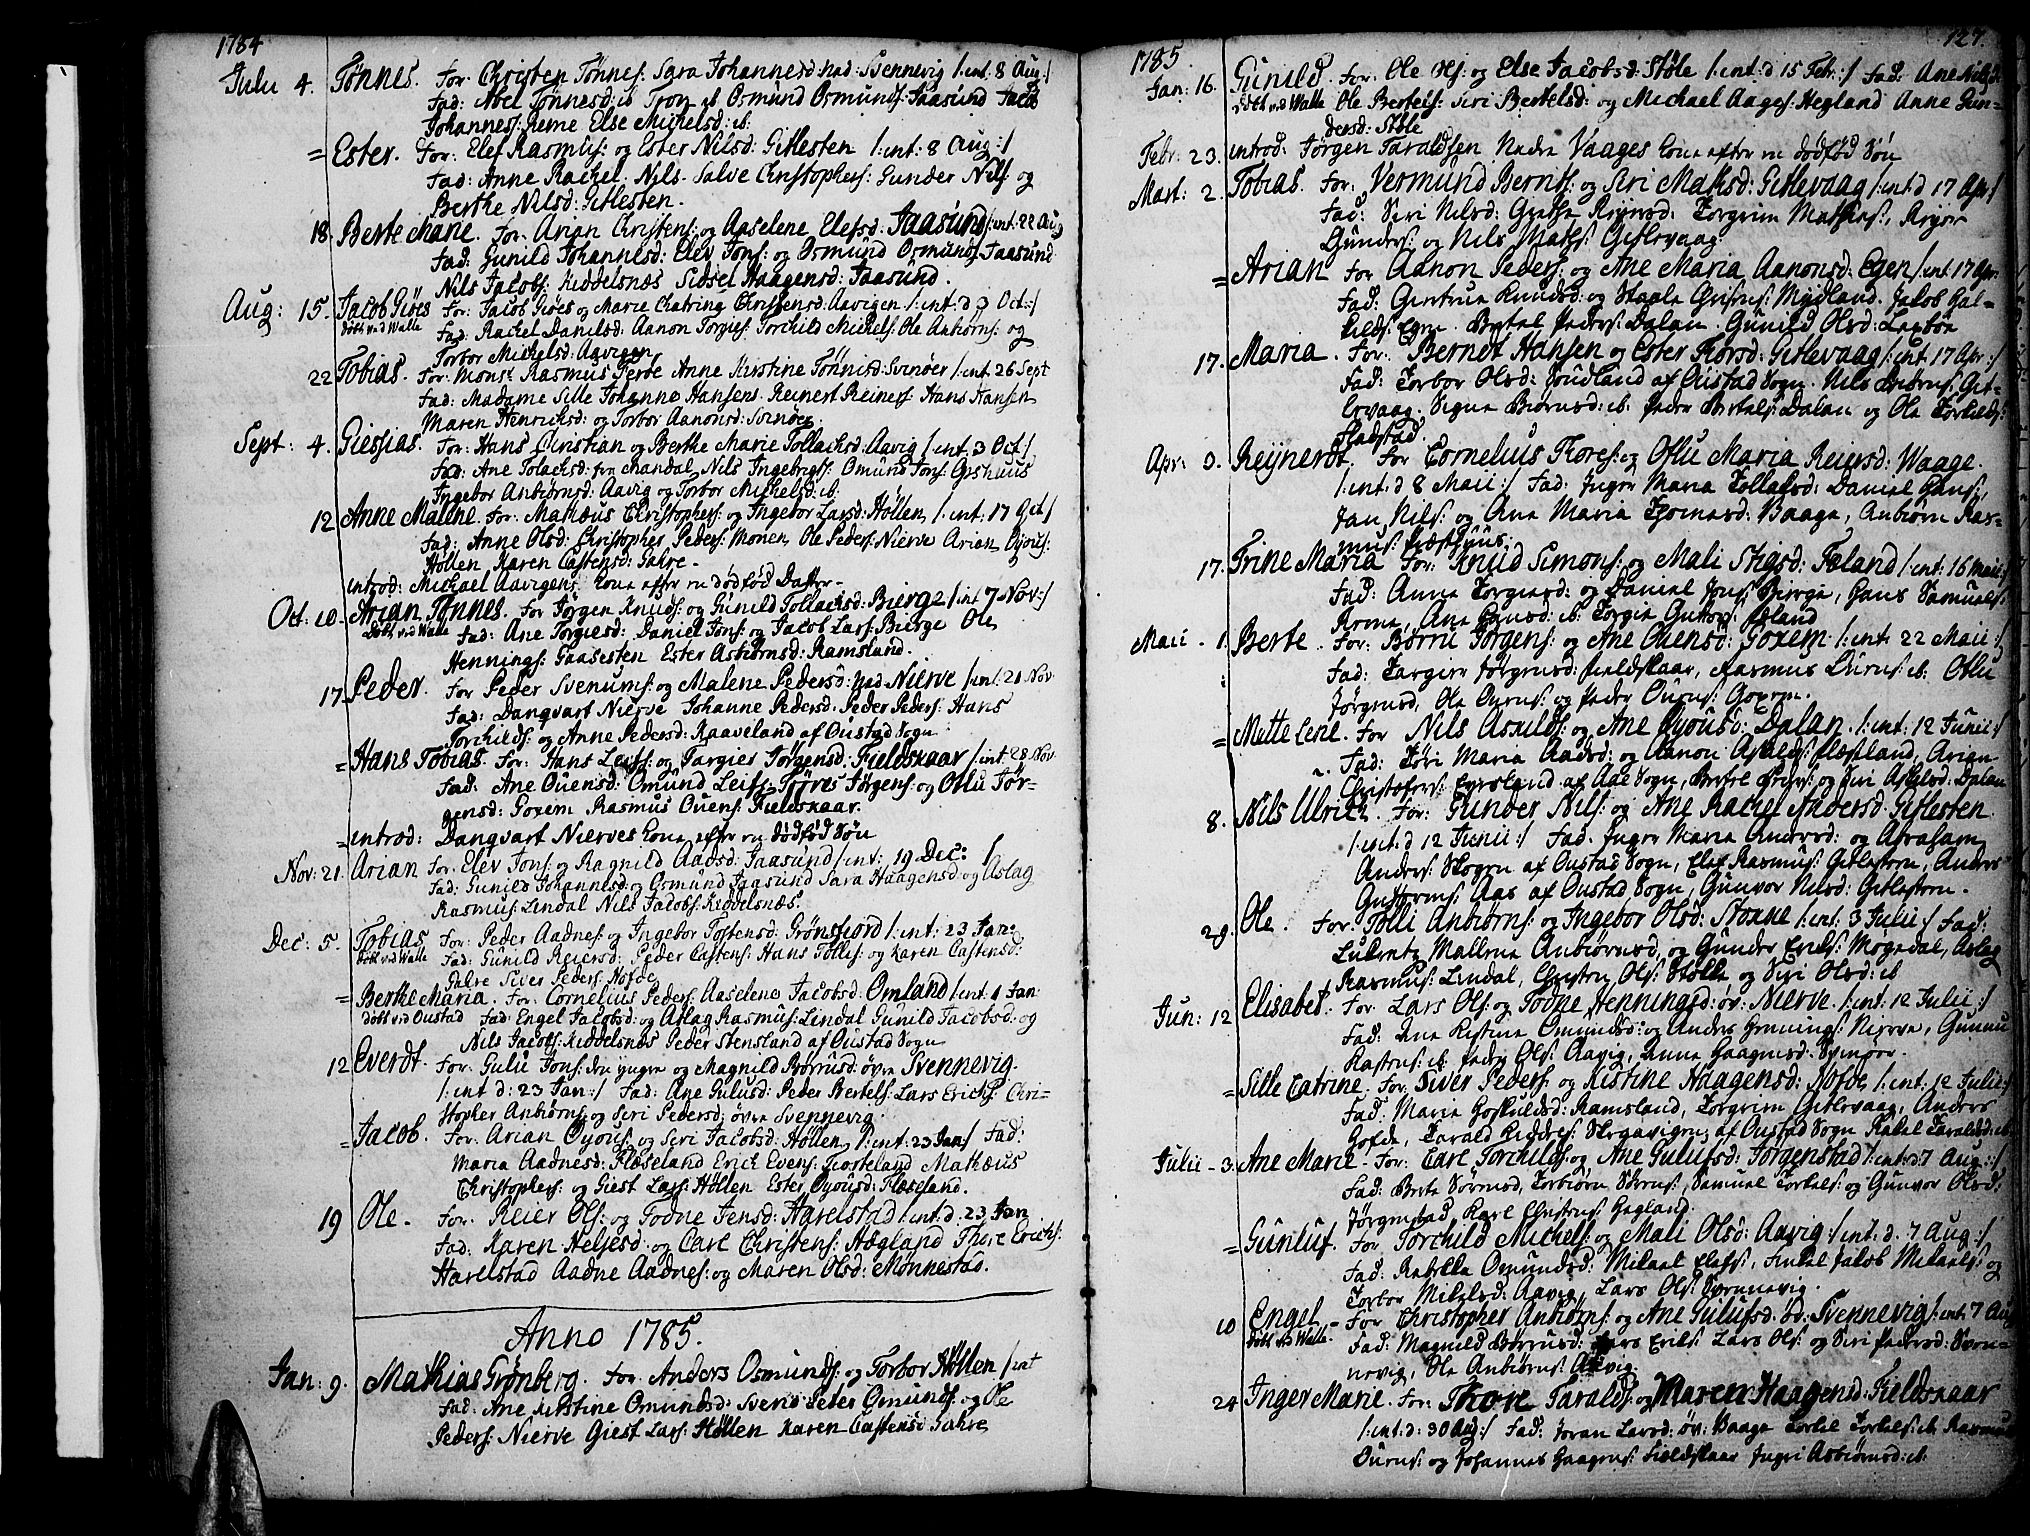 1784
Julii 4. Tønnes. For: Christen Tønnes: Sara Johannesd: Nad: Svennevig /:int: 8 Aug:/
Fad: Tønnesd: ib Osmund Osmunds: Jaasund Jacob
Johannes: Reme Else Michelsd: ib:
= Ester. For: Elef Rasmus: og Ester Nilsd: Gitlesten /:int: 8 Aug:/
Fad: Anne Rachel Nils Salve Christophers: Gunder Nils: og
Berthe Nilsd: Gitlesten.
18. Berte Marie. For: Arian Christens: og Aaselene Elefsd: Jaasund /:int: 22 Aug
Fad: Gunild Johannesd: Elev Jons: og Osmund Osmunds: Jaasund
Nils Jacobs: Kiddelsnæs Sidsel Haagensd: Jaasund.
Aug: 15. Jacob Giöes For: Jacob Giöes og Marie Chatring Christensd: Aavigen /:int: d 3 Oct:/
döbt ved Walle Fad: Rachel Danilsd: Aanon Torgies: Torchild Michels: Ole Anbiörns: og
Torbor Michelsd: Aavigen
22 Tobias. For: Mons: Rasmus Anne Kirstine Tönnisd: Svinöer /:int: 26 Sept
Fad: Madame Sille Johanne Hansens Reinert Reiners: Hans Hansen
Maren Henrichsd: og Torbor Aanonsd: Svinöer
Sept: 4. Giessias. For: Hans Christian og Berthe Marie Tollachsd: Aavig /:int: 3 Oct:/
Fad: Ane Tolachsd: fra Mandal, Nils Ingebrigts: Omund Jons:
Ingebor Anbiörnsd: Aavig og Torbor Michelsd: ib:
12 Anne Malene. For: Mathæus Christophers: og Ingebor Larsd: Höllen /:int: 17 Oct:/
Fad: Anne Olsd: Christopher Peders: Monen Ole Peders: Nierve Arian Oyous:
Höllen Karen Castensd: Sahre.
introd: Michael Aavigens Kone efter en dödföd Datter.
Oct: 10. Arian Tönnes. For: Jörgen Knuds: og Gunild Tollachsd: Bierge /:int 7 Nov:/
döbt ved Walle Fad: Ane Torgiesd: Daniel Jons: og Jacob Lars: Bierge Ole
Hennings: Gaasesten Ester Asbiörnsd: Ramsland.
17. Peder. For Peder Svenums: og Malene Pedersd: Nad Nierve /:int: 21 Nov
Fad: Dangvart Nierve Johanne Pedersd: Peder Peders: Hans
Torchilds: og Anne Pedersd: Kaaveland af Oustad Sogn
= Hans Tobias. For: Hans Leifs: og Targier Jörgensd: Fieldskaar /:int 28 Nov
Fad: Ane Ouensd: Omund Leifs: Jörgens: og Oslu Jör-
gensd: Goxem Rasmus Ouens: Fieldskaar.
= introd: Dangvart Nierves Kone efter en dödföd Sön
Nov: 21. Arian For: Elev Jons: og Ragnild Aadsd: Jaasund /:int: 19 Dec: /
Fad: Gunild Johannesd: og Osmund Jaasund Sara Haagensd og Aslag
Rasmus: Lindal Nils Jacobs: Kiddelsnæs.
Dec: 5. Tobias For: Peder Aadnes: og Ingebor Tostensd: Grönsfiord /:int: 23 Jan:
döbt ved Walle Fad: Gunild Reiersd: Peder Castens: Hans Tollis: og Karen Castensd:
Sahre Siver Peders: Nofde
= Berthe Maria. For: Cornelius Peders: Aaselene Jacobsd: Omland /:int: 1 Jan
döbt ved Oustad Fad: Engel Jacobsd: og Aslag Rasmus: Lindal Gunild Jacobsd: og
Nils Jacobs: Kiddelsnæs Peder Stensland af Oustad Sogn
12 Everdt. For: Gulu Jons: den yngre og Magnild Börrusd: övre Svennevig.
/:int d: 23 Jan:/ Fad: Ane Gulusd: Peder Bertels: Lars Erichs: Chri-
stopher Anbiörns: og Seri Pedersd: övre Svennevig.
= Jacob. For: Arian Oyous: og Seri Jacobsd: Höllen /:int: 23 Jan:/ Fad:
Maria Aadnesd: Flæseland Erick Evens: Tiosteland Mathæus
Christophers: og Giest Lars: Höllen Ester Oyousd: Flæseland.
19 Ole. For: Reier Ols: og Todne Jensd: Harelstad /:int: d. 23 Jan
Fad: Karen Neljesd: og Carl Christens: Hægland Thore Erichs:
Harelstad Aadne Aadnes: og Maren Olsd: Monnestad.
Anno 1785.
Jan: 9. Mathias Grönberg. For: Anders Osmunds: og Torbor Höllen /:int
Fad: Ane Kirstine Omundsd: Svend Peter Omunds: og Ole
Peders: Nierve Giest Lars: Höllen Karen Castensd Sahre
1785. 127.
Jan: 16. Gunild For: Ole Ols: og Else Jacobsd: Støle /:int: d 15 Febr:/ Fad: Ane Nilsd:
döbt ved Walle Ole Bertels: Siri Bertelsd: og Michael Aages: Hegland Anne Gun-
dersd: Støle
Febr: 23. introd: Jørgen Taraldsen Nedre Vaages Kone efter en dödföd Sön
Mart: 2. Tobias. For: Vermund Bernts: og Siri Mathsd: Gitlevaag /:int: d 17 Apr:/
Fad: Siri Nilsd: Grethe Torgrim Mathias:
Gunders: og Nils Maths: Gitlevaag.
= Arian For Aanon Peders: og Ane Maria Aanonsd: Egen /:int: 17 Apr:
Fad: Gertrue Knudsd: og Staale Mydland. Jacob Hal-
Bertel Peders: Dalan. Gunild Olsd:
17. Maria. For: Bernet Hansen og Ester Torsd: Gitlevaag /:int: 17 Apr:/
Fad: Torbor Olsd: af Oustad Sogn. Nils Biörns: Git-
levaag. Signe Biörnsd: ib. Peder Bertels: Dalan og Ole Torkilds:
Apr: 3. Reijnerdt. For Cornelius Thores: og Oslu Maria Reiersd: Waage
/:int: d 8 Maii:/ Fad: Inger Maria Tollefsd: Daniel Hans:
Jan Nils: og Ane Maria Baage, Anbiörn Ras-
mus:
17. Trine Maria For: Knud Simons: og Mali Stigsd: Foland /:int: 16 Maii:/
Fad: Anna Torgiesd: og Daniel Jons: Bierge, Hans Samuels:
Rome, Ane ib: Torgie
Maii 1. Berte. For: Börre Jörgens: og Ane Ouensd: Goxem /:int: 22 Maii:/
Fad: Targier Jörgensd: Fieldskaar, Rasmus Ouens: ib: Oslu
Jörgensd, Ole Ouens: og Peder Ouens: Goxem.
= Mette Cecil. For Nils Askilds: og Ane Oyousd: Dalan. /:int: 12 Junii:/
Fad: Siri Maria Aadsd: og Aanon Askilds: Arian
Christofers: af Aae Sogn, Bertel og Siri Dalan
8. Nils Ulrich. For: Gunder Nils: og Ane Rachel Andersd: Gitlesten
/:int: d 12 Junii:/ Fad. Inger Maria Andersd: og Abraham
Anders: af Oustad Sogn, Elef Rasmus: Gitlesten, Anders
Guttorms: Aas af Oustad Sogn, Gunvor Nilsd: Gitlesten.
29. Ole. For: Tolli Anbiörns: og Ingebor Olsd: Stoune /:int: 3 Julii:/ Fad:
Mallene Anbiörnsd, og Gunder Eriks: Møgedal, Aslag
Rasmus: Lindal, Christen Ols: Støle og Siri Olsd: ib
Jun: 12 Elisabet. For: Lars Ols: og Todne Henningsd: öv: Nierve. /:int: 12 Julii:/
Fad: Ane Kistine Omundsd: og Anders Hennings: Nierve, Gunnu
ib. Peder Ols: Aavig, Anne Haagensd: Svinöer.
= Sille Catrine. For: Siver Peders: og Kistine Haagensd: Nofde /:int: 12 Julii:/
Fad: Maria Ramsland, Torgrim Gitlevaag, Anders
Tarald af Oustad Sogn Rakel Taraldsd: ib
Julii 3. Ane Marie. For: Carl Torchilds: og Ane Gulufsd: Jörgenstad /:int: d 7 Aug:/
Fad: Berte Torbiörn Samuel Torkels: og Gunvor Olsd:
Jörgenstad Karl Christens: Hægland.
= Gunluf. For Torchild Michels: og Mali Olsd: Aavig /:int: d. 7 Aug:/
Fad: Omundsd: Mikael Elefs: Jacob Mikaels: og
Torbor Mikelsd: Aavig, Lars Ols: Svennevig.
10 Engel For Christopher Anbiörns: og Ane Gulufsd: öv: Svennevig /:int: 7 Aug
döbt ved Walle. Fad: Magnild Börrusd: Lars Eriks: Lars Ols: og Siri Pedersd: Sven-
nevig, Ole Anbiörns: Aavig.
24 Inger Marie. For: Thore Taralds: og Maren Haagensd: Fieldskaar
/:int: d: 30 Aug:/ Fad: Joran Larsd: öv: Vaage Torkel Torkels: ib Rasmus
Ouens: og Johannes Haagens: Fieldskaar Ingri Asbiörnsd: ib.